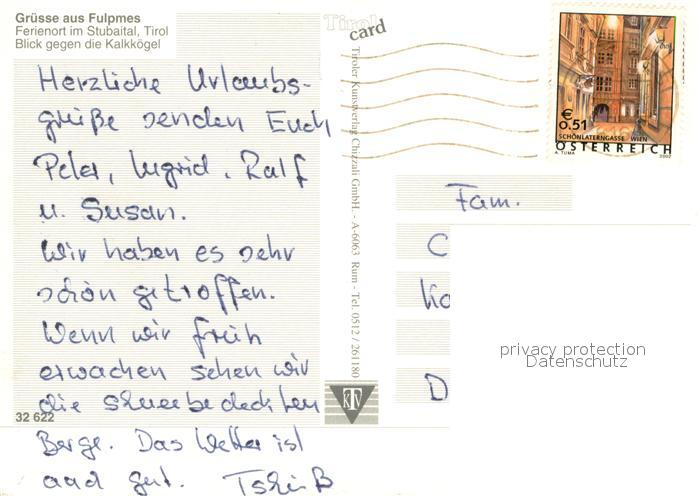 Grüsse aus Fulpmes
Ferienort im Stubaital, Tirol
Blick gegen die Kalkkögel
Herzliche Urlaubs-
grüße senden Euch
Peter, Ingrid, Ralf
u. Susan.
Wir haben es sehr
schön getroffen.
Wenn wir früh
erwachen sehen wir
die schneebedeckten
Berge. Das Wetter ist
gut. Tschüß
32 622
Tirol
card
Tiroler Kunstverlag Chizzali GmbH. - A-6063 Rum - Tel. 0512 / 261180
KTV
€
0.51
SCHÖNLATERNGASSE WIEN
ÖSTERREICH
A. TUMA 2002
Fam.
C
Ko
D
privacy protection
Datenschutz